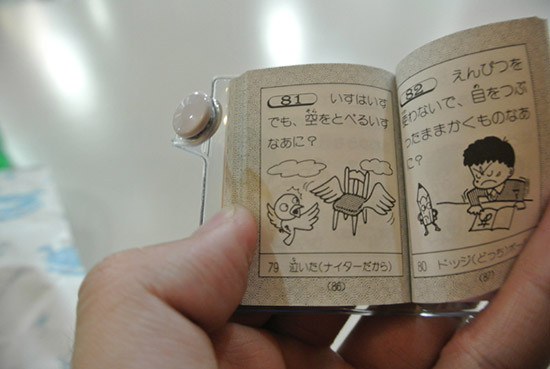 81 いすはいす
でも、空をとべるいす
なあに？
79 泣いた(ナイターだから)
(86)
82 えんぴつを
使わないで、目をつぶ
ったままかくものなあ
に？
80 ドッジ(どっち)ボー
(87)